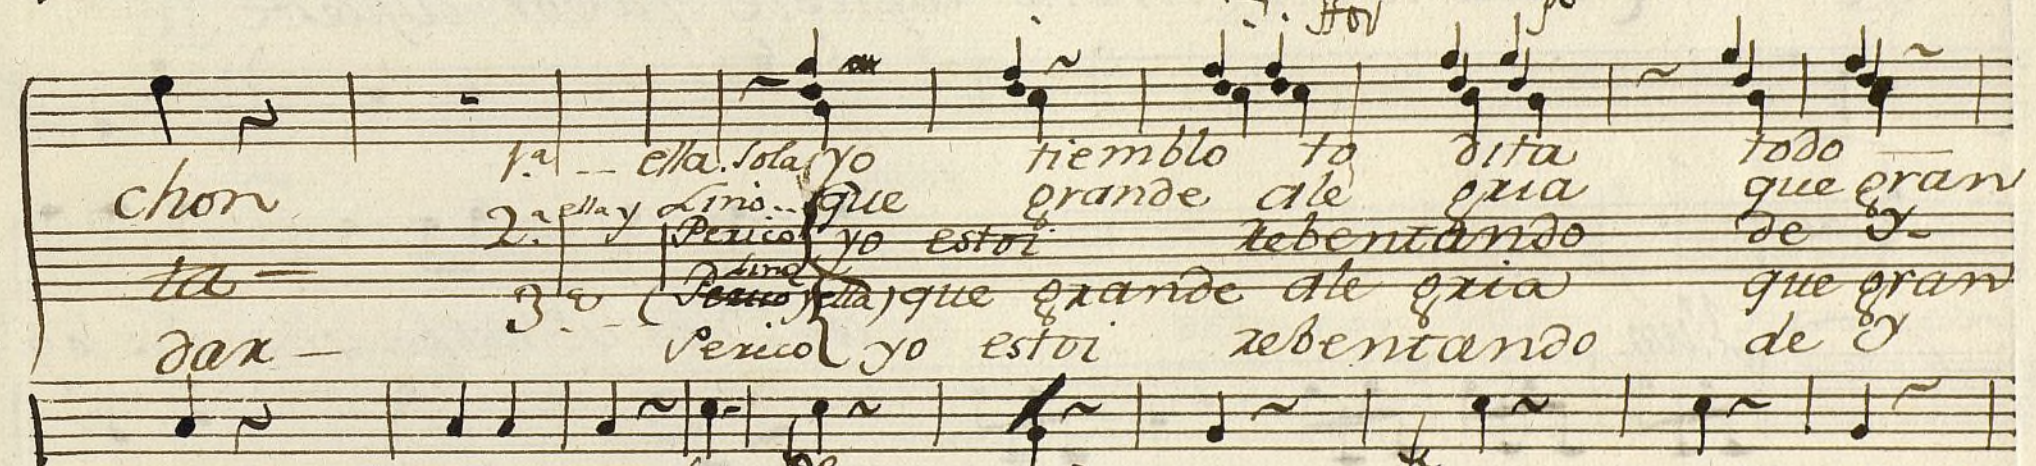 1.ª ella. sola yo tiemblo to dita todo
chon 2.ª ella y Lino.. que grande ale gria que gran
Perico yo estoi rebentando de y
ta Lino
3ª (Perico y ella) que grande ale gria que gran
dar Perico yo estoi rebentando de y